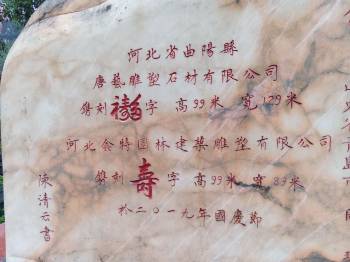 河北省曲陽縣
唐藝雕塑石材有限公司
鐫刻福字 高99米 寬129米
河北合特園林建築雕塑有限公司
鐫刻壽字 高99米 寬83米
於二〇一九年國慶節
陳清云書